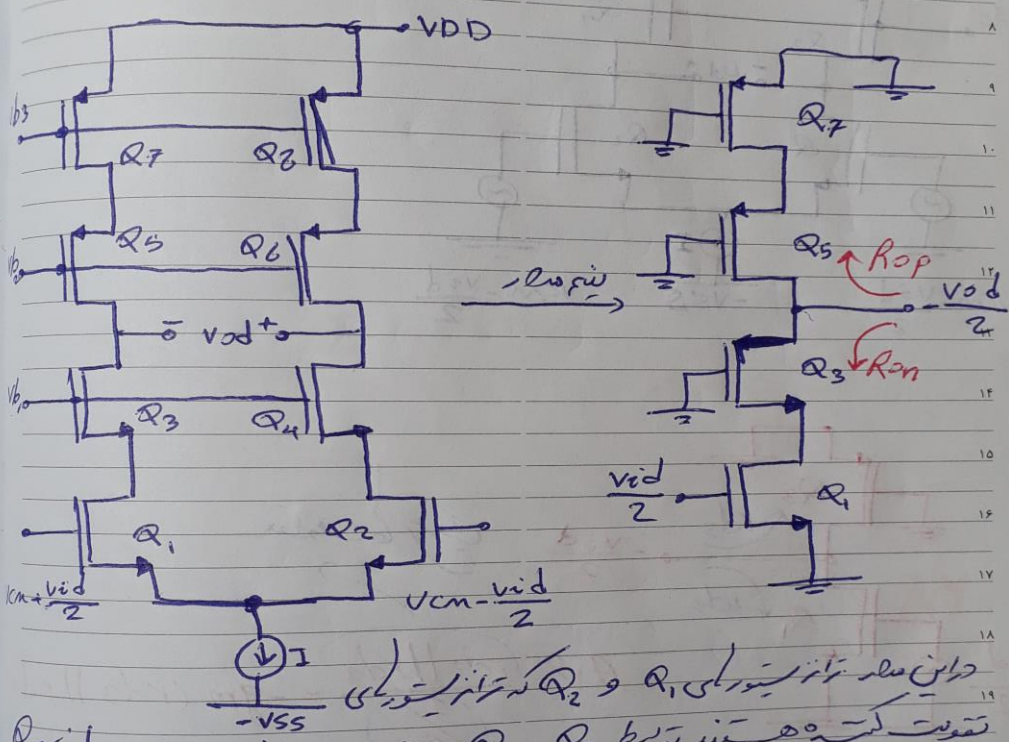 VDD
Vb3
Q7
Q8
Q5
Q6
Vb2
- vod +
Vb1
Q3
Q4
Q1
Q2
vcm + vid/2
vcm - vid/2
I
-VSS
نیم مدار
Q7
Q5
Rop
-vod/2
Q3
Ron
vid/2
Q1
۸
۹
۱۰
۱۱
۱۲
۱۴
۱۵
۱۶
۱۷
۱۸
۱۹
در این مدار ترانزیستورهای Q1 و Q2 که ترانزیستورهای
تقویت کننده هستند توسط